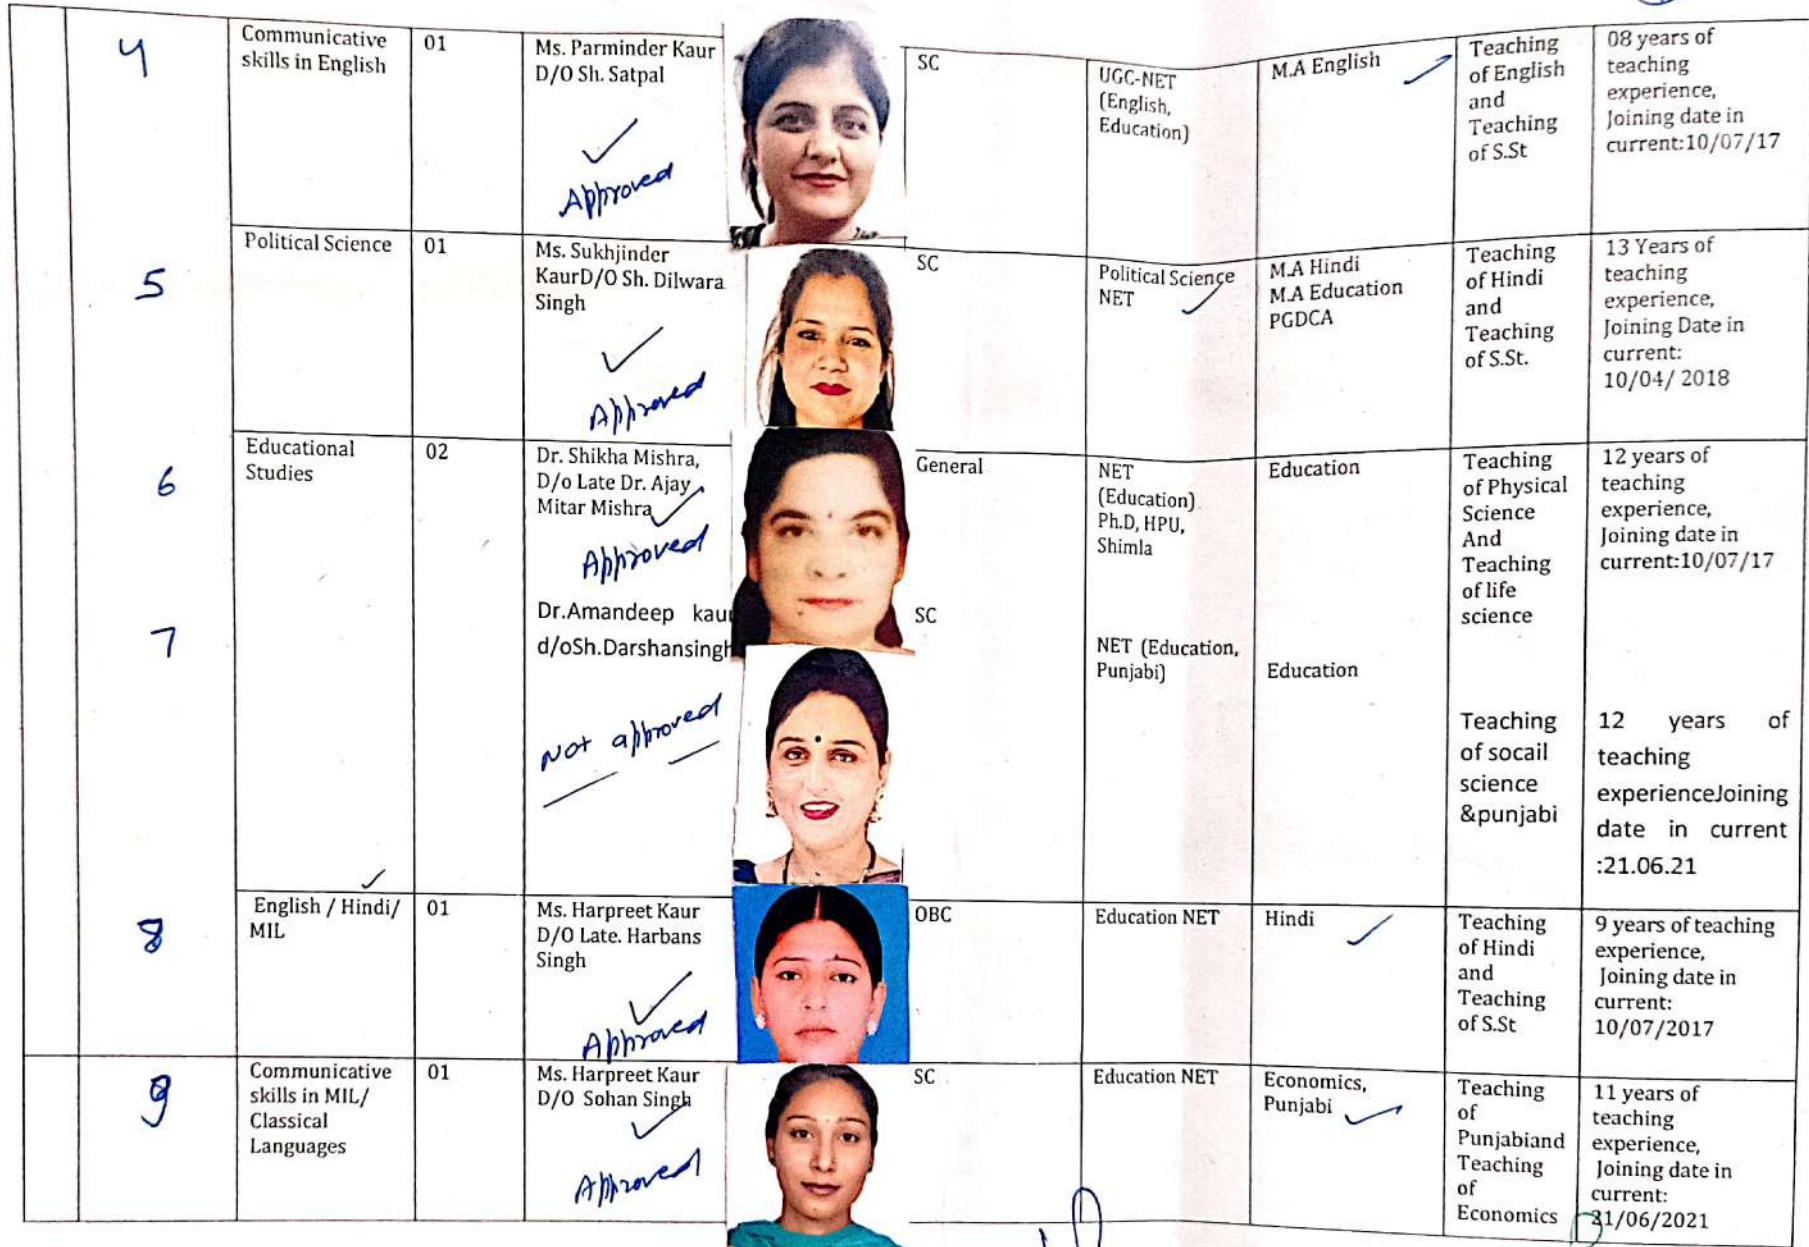 4
Communicative
skills in English
01
Ms. Parminder Kaur
D/O Sh. Satpal
Approved
SC
UGC-NET
(English,
Education)
M.A English
Teaching
of English
and
Teaching
of S.St
08 years of
teaching
experience,
Joining date in
current:10/07/17
5
Political Science
01
Ms. Sukhjinder
KaurD/O Sh. Dilwara
Singh
Approved
SC
Political Science
NET
M.A Hindi
M.A Education
PGDCA
Teaching
of Hindi
and
Teaching
of S.St.
13 Years of
teaching
experience,
Joining Date in
current:
10/04/ 2018
6
Educational
Studies
02
Dr. Shikha Mishra,
D/o Late Dr. Ajay
Mitar Mishra
Approved
General
NET
(Education)
Ph.D, HPU,
Shimla
Education
Teaching
of Physical
Science
And
Teaching
of life
science
12 years of
teaching
experience,
Joining date in
current:10/07/17
7
Dr.Amandeep kaur
d/oSh.Darshansingh
Not approved
SC
NET (Education,
Punjabi)
Education
Teaching
of socail
science
&punjabi
12 years of
teaching
experienceJoining
date in current
:21.06.21
8
English / Hindi/
MIL
01
Ms. Harpreet Kaur
D/O Late. Harbans
Singh
Approved
OBC
Education NET
Hindi
Teaching
of Hindi
and
Teaching
of S.St
9 years of teaching
experience,
Joining date in
current:
10/07/2017
9
Communicative
skills in MIL/
Classical
Languages
01
Ms. Harpreet Kaur
D/O Sohan Singh
Approved
SC
Education NET
Economics,
Punjabi
Teaching
of
Punjabiand
Teaching
of
Economics
11 years of
teaching
experience,
Joining date in
current:
21/06/2021